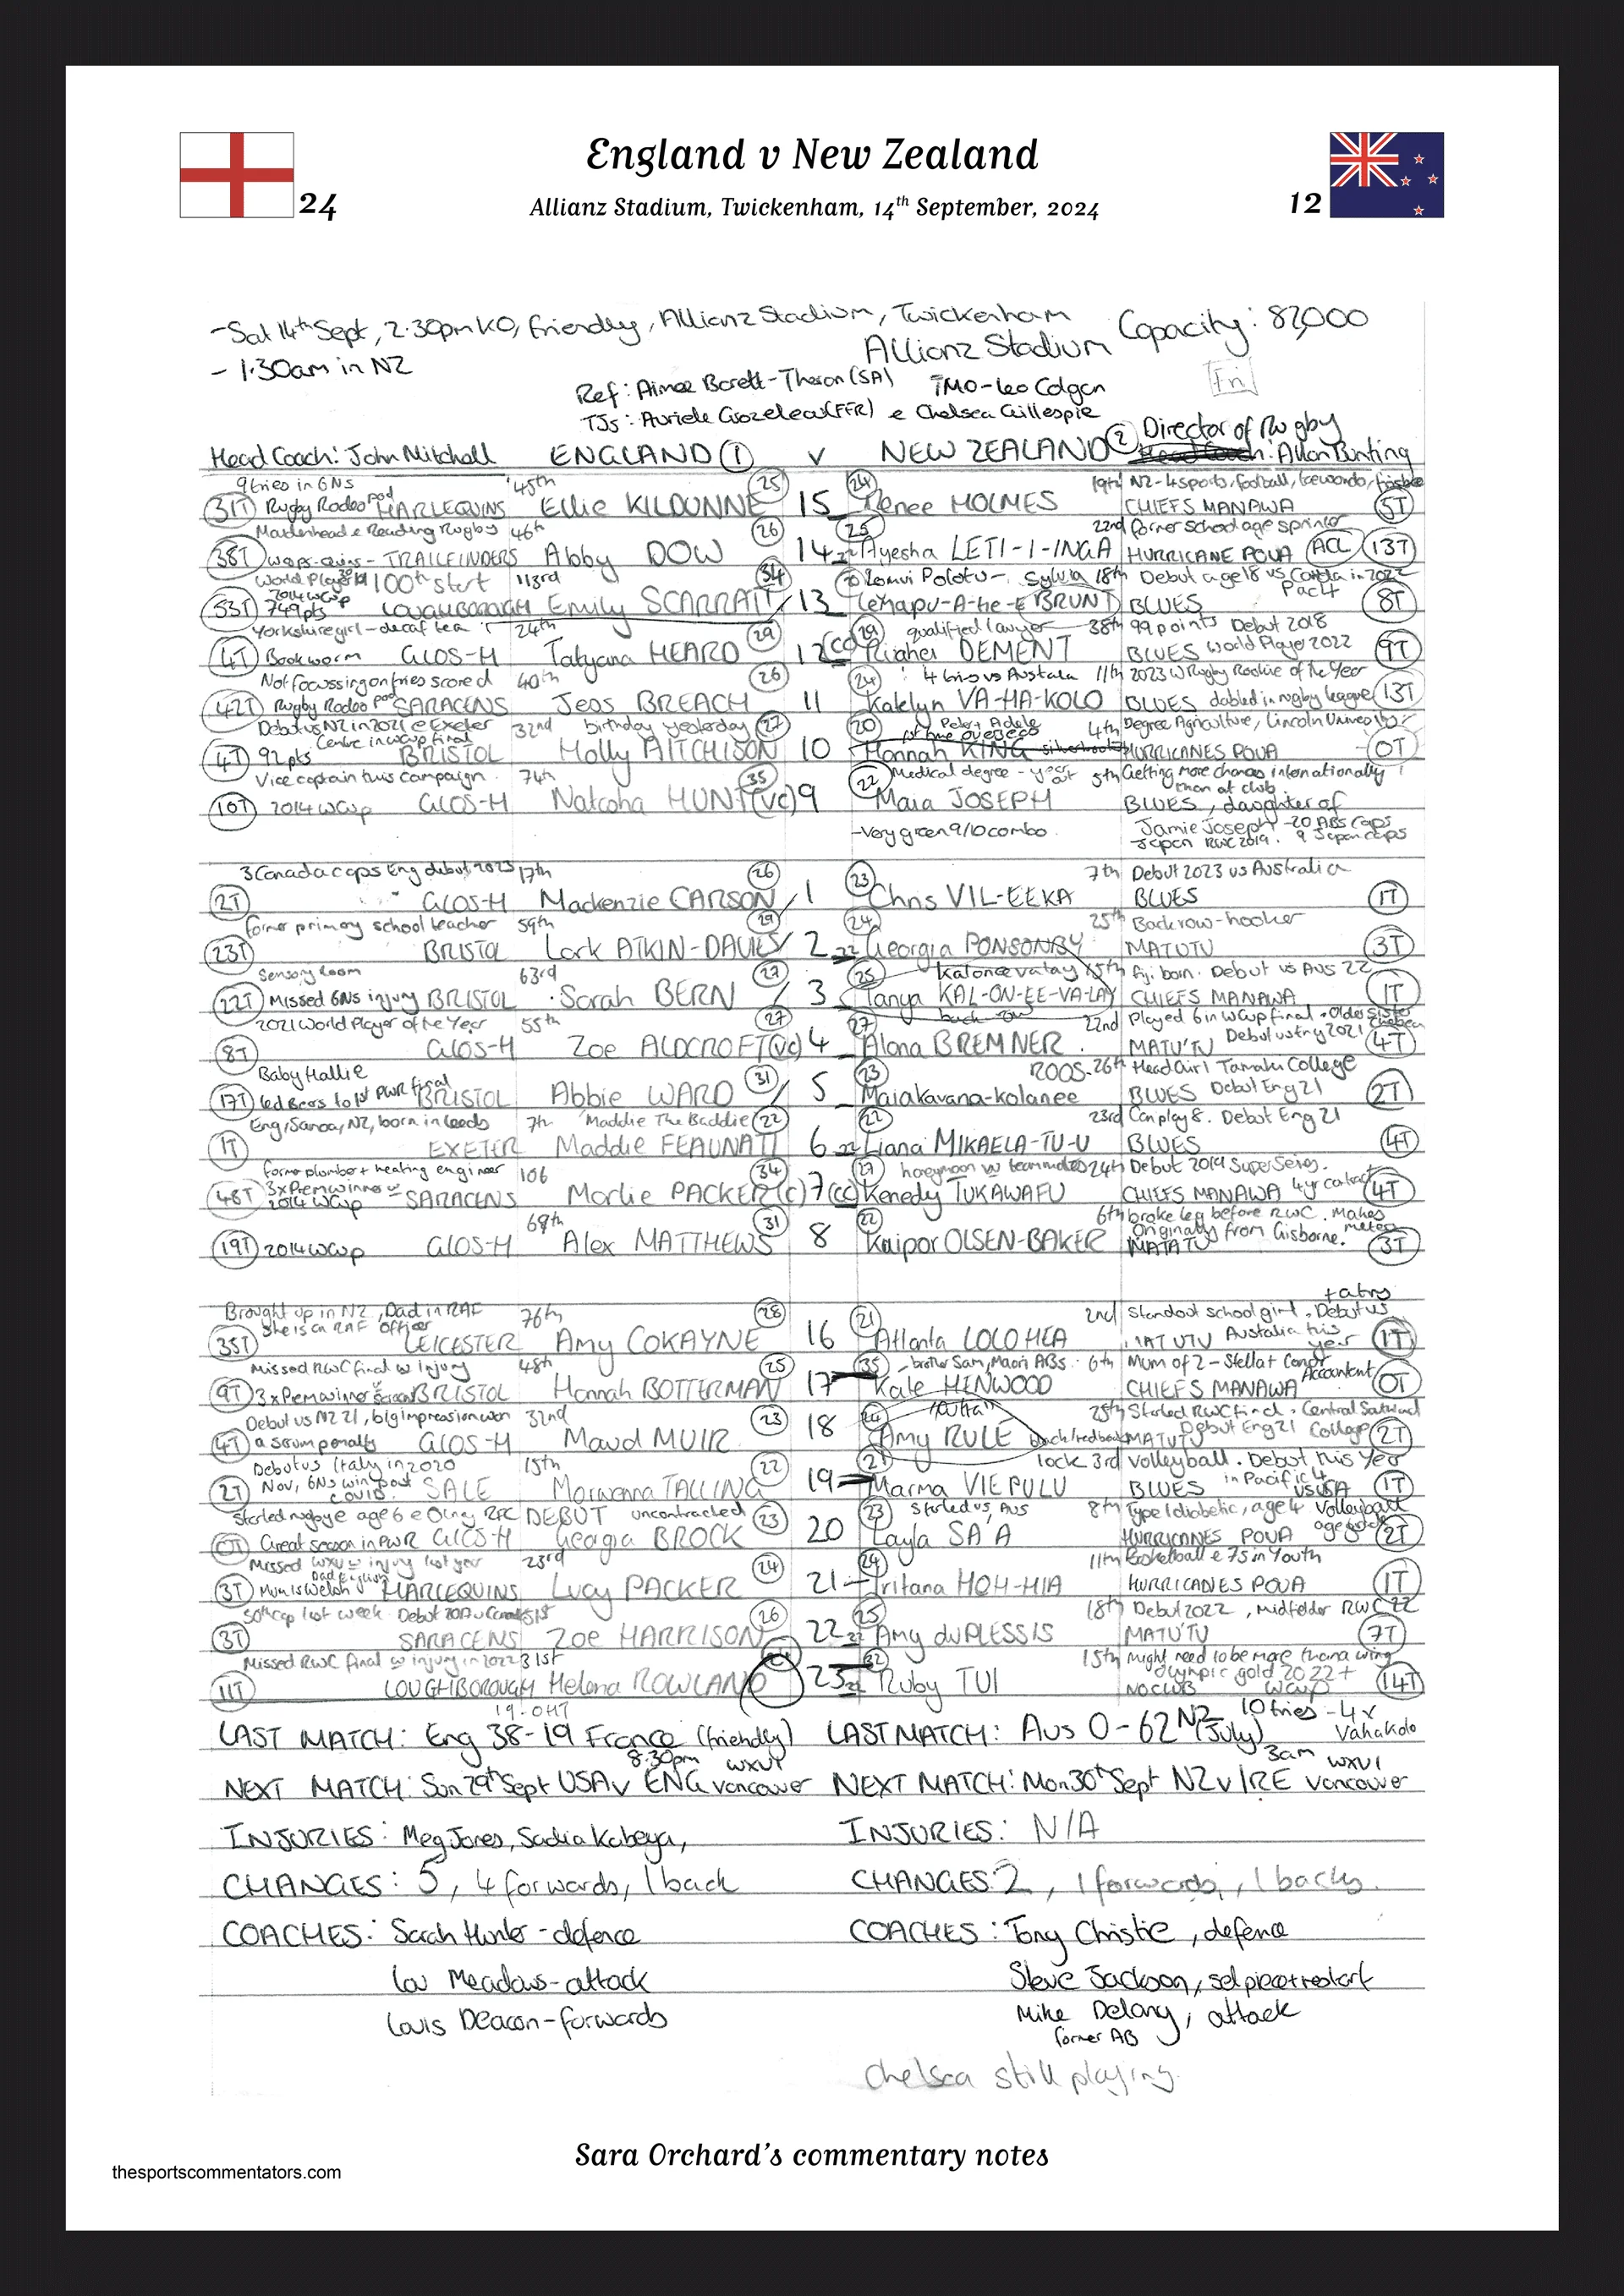 England v New Zealand
24
Allianz Stadium, Twickenham, 14th September, 2024
12
-Sat 14th Sept, 2.30pm KO, friendly, Allianz Stadium, Twickenham
Allianz Stadium
Capacity: 82,000
- 1.30am in NZ
Fri
Ref: Aimee Barett-Theron (SA) TMO-Leo Colgan
TJs: (FFR) e Chelsea Gillespie
Head Coach: John Mitchell ENGLAND ① v NEW ZEALAND ② Director of Rugby : Allan Bunting
9 tries in 6Ns 45th 25 24 19th NZ-4 sports, football, taewondo, frisbee
31T Rugby Rodeo pod HARLEQUINS Ellie KILDUNNE 15 Renee HOLMES CHIEFS MANAWA 5T
Maidenhead e Reading Rugby 46th 26 25 22nd former school age sprinter
38T wasps-quins-TRAILFINDERS Abby DOW 14 Ayesha LETI-I-INGA HURRICANE POUA ACL 13T
World Player 19 100th start 113rd 34 Sylvia 18th Debut age 18 vs in 2022
2014 WCup Pac4
53T 749pts LOUGHBOROUGH Emily SCARRATT 13 BRUNT BLUES 8T
Yorkshire girl-decaf tea 24th 29 29 qualified lawyer 38th 99 points Debut 2018
4T Bookworm GLOS-H Tatyana HEARD 12 (cc) DEMENT BLUES World Player 2022 9T
Not focussing on tries scored 40th 26 24 4 tries vs Australia 11th 2023 W Rugby Rookie of the Year
42T Rugby Rodeo pod SARACENS Jess BREACH 11 Katelyn VA-HA-KOLO BLUES dabled in rugby league 13T
Debut vs NZ in 2021 e Exeter 32nd birthday yesterday 27 20 Peter + Adele 4th Degree Agriculture, Lincoln
Centre in WCup final 1st time overseas
4T 92pts BRISTOL Holly AITCHISON 10 Hannah KING HURRICANES POUA 0T
Vice captain this campaign 74th 35 22 Medical degree - 5th Getting more chances internationally
than at club
16T 2014 WCup GLOS-H Natasha HUNT (vc) 9 Maia JOSEPH BLUES, daughter of
-Very green 9/10 combo Jamie Joseph - 20 ABs caps
Japan RWC 2019. 9 Japan caps
3 Canada caps Eng debut 2023 17th 26 23 7th Debut 2023 vs Australia
2T GLOS-H Mackenzie CARSON 1 Chris VIL-EEKA BLUES 1T
former primary school teacher 59th 29 24 25th Backrow-hooker
23T BRISTOL Lark ATKIN-DAVIES 2 Georgia PONSONBY MATUTU 3T
Sensory Room 63rd 27 25 15th Fiji born. Debut vs AUS 22
22T Missed 6Ns injury BRISTOL Sarah BERN 3 Tanya KAL-ON-EE-VA-LAY CHIEFS MANAWA 1T
2021 World Player of the Year 55th 27 back row 27 22nd Played 6 in WCup final. Older sister Chelsea
8T GLOS-H Zoe ALDCROFT (vc) 4 Alana BREMNER MATU'TU Debut 2021 4T
Baby Hallie 31 23 ROOS. 26th Head Girl Tamaki College
17T led Bears to 1st PWR final BRISTOL Abbie WARD 5 Maiakavana-kolanee BLUES Debut Eng 21 2T
Eng, Samoa, NZ, born in Leeds 7th Maddie The Baddie 22 22 23rd Can play 8. Debut Eng 21
1T EXETER Maddie FEAUNATI 6 Liana MIKAELA-TU-U BLUES 4T
former plumber + heating engineer 106 34 27 honeymoon w teammates 24th Debut 2019 Super Series.
48T 3xPrem winner 2014 WCup SARACENS Marlie PACKER (c) 7 (cc) Kenedy TUKAWAFU CHIEFS MANAWA 4yr contract 4T
68th 31 22 6th broke leg before RWC. Makes
Originally from Gisborne.
19T 2014 WCup GLOS-H Alex MATTHEWS 8 Kaipo OLSEN-BAKER MATATU 3T
Brought up in NZ, Dad in RAF 76th 28 21 2nd Standout school girl. Debut vs
She is a RAF officer
35T LEICESTER Amy COKAYNE 16 Atlanta LOLOHEA MATUTU Australia this year + a try 1T
Missed RWC final w injury 48th 25 35 - brother Sam, Maori ABs. 6th Mum of 2 - Stella + Conor Accountant
9T 3xPrem winner BRISTOL Hannah BOTTERMAN 17 Kate HENWOOD CHIEFS MANAWA 0T
Debut vs NZ 21, big impression won 32nd 23 25th Started RWC final. Central
4T a scrum penalty GLOS-H Maud MUIR 18 Amy RULE MATUTU Debut Eng 21 College 2T
Debut vs Italy in 2020 15th 22 21 lock 3rd volleyball. Debut this Year
2T Nov, 6Ns win post covid SALE Morwenna TALLING 19 Marma VIEPULU BLUES in Pacific 4 vs USA 1T
Started rugby e age 6 e Olney RFC DEBUT uncontracted 23 23 Started vs AUS 8th Type 1 diabetic, age 4 Volleyball
0T Great season in PWR GLOS-H Georgia BROCK 20 Layla SA'A HURRICANES POUA 2T
Missed WXV w injury last year 23rd 24 24 11th Basketball e 7s in Youth
3T Mum is Welsh Dad English HARLEQUINS Lucy PACKER 21 Iritana HOH-HIA HURRICANES POUA 1T
50th cap last week. Debut 51st 26 25 18th Debut 2022, midfielder RWC 22
3T SARACENS Zoe HARRISON 22 Amy duPLESSIS MATU'TU 7T
Missed RWC final w injury in 2022 31st 32 15th might need to be more than a wing
Olympic gold 2022 + WCup
11T LOUGHBOROUGH Helena ROWLAND 23 Ruby TUI NO CLUB 14T
19-0 HT
LAST MATCH: Eng 38-19 France (friendly) LAST MATCH: Aus 0-62 NZ (July) 10 tries - 4x Vahakolo
8.30pm WXV1 3am WXV1
NEXT MATCH: Sun 29th Sept USA v ENG Vancouver NEXT MATCH: Mon 30th Sept NZ v IRE Vancouver
INJURIES: Meg Jones, Sadia Kabeya, INJURIES: N/A
CHANGES: 5, 4 forwards, 1 back CHANGES: 2, 1 forwards, 1 backs.
COACHES: Sarah Hunter - defence COACHES: Tony Christie, defence
Lou Meadows - attack Steve Jackson, set piece + restart
Louis Deacon - forwards Mike Delany, attack
former AB
Chelsea still playing.
Sara Orchard's commentary notes
thesportscommentators.com